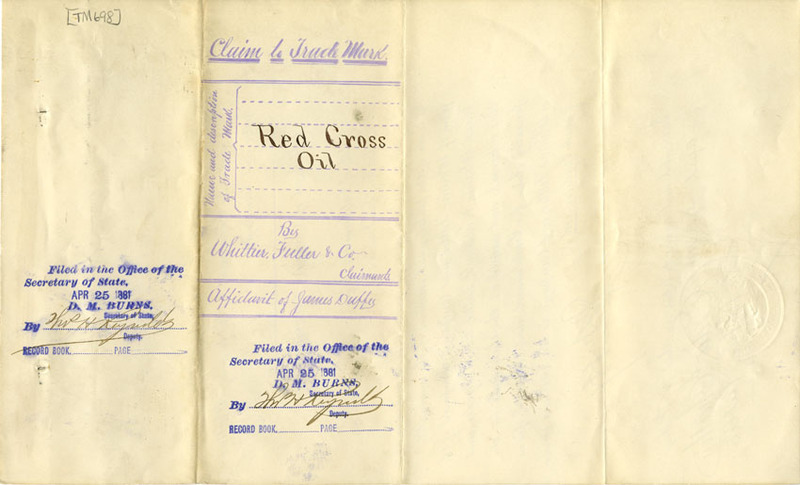 [TM698]
Filed in the Office of the
Secretary of State,
APR 25 1881
D. M. BURNS,
Secretary of State,
By Thos H Reynolds
Deputy.
RECORD BOOK, PAGE
Claim to Trade Mark.
Name and description
of Trade Mark.
Red Cross
Oil
By
Whittier, Fuller & Co
Claimants
Affidavit of James Duffy
Filed in the Office of the
Secretary of State,
APR 25 1881
D. M. BURNS,
Secretary of State,
By Thos H Reynolds
Deputy.
RECORD BOOK, PAGE